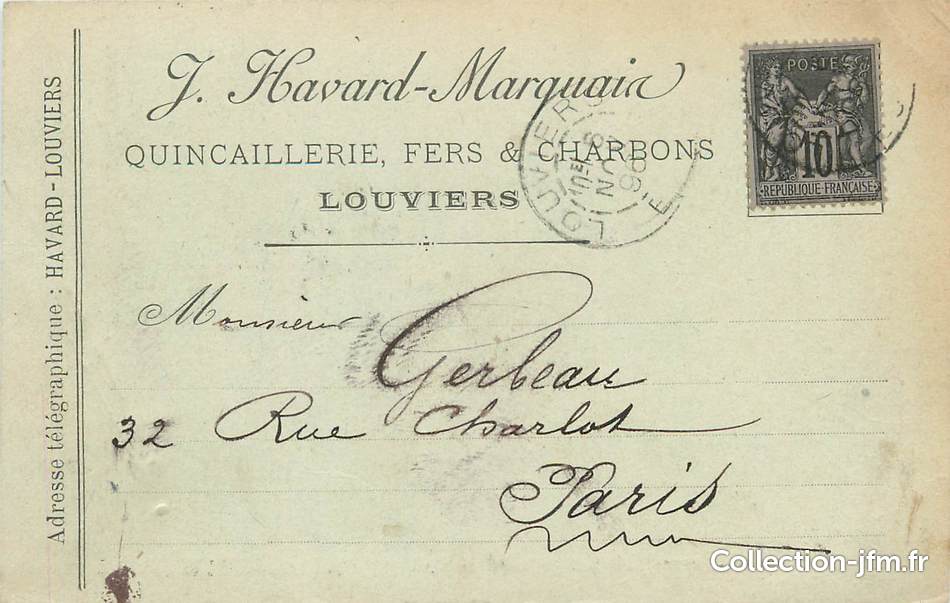 J. Havard-Marquais
QUINCAILLERIE, FERS & CHARBONS
LOUVIERS
Adresse télégraphique : HAVARD-LOUVIERS
LOUVIERS
NOV
98
E
POSTE
10
REPUBLIQUE FRANÇAISE
Monsieur
Gerbeau
32 Rue Charlot
Paris
Collection-jfm.fr